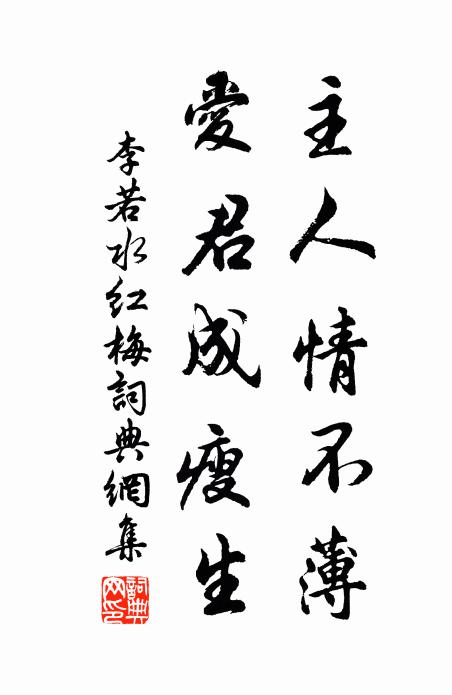 主人情不薄
愛君成瘦生
李若水紅梅詞典網集
詞典网印